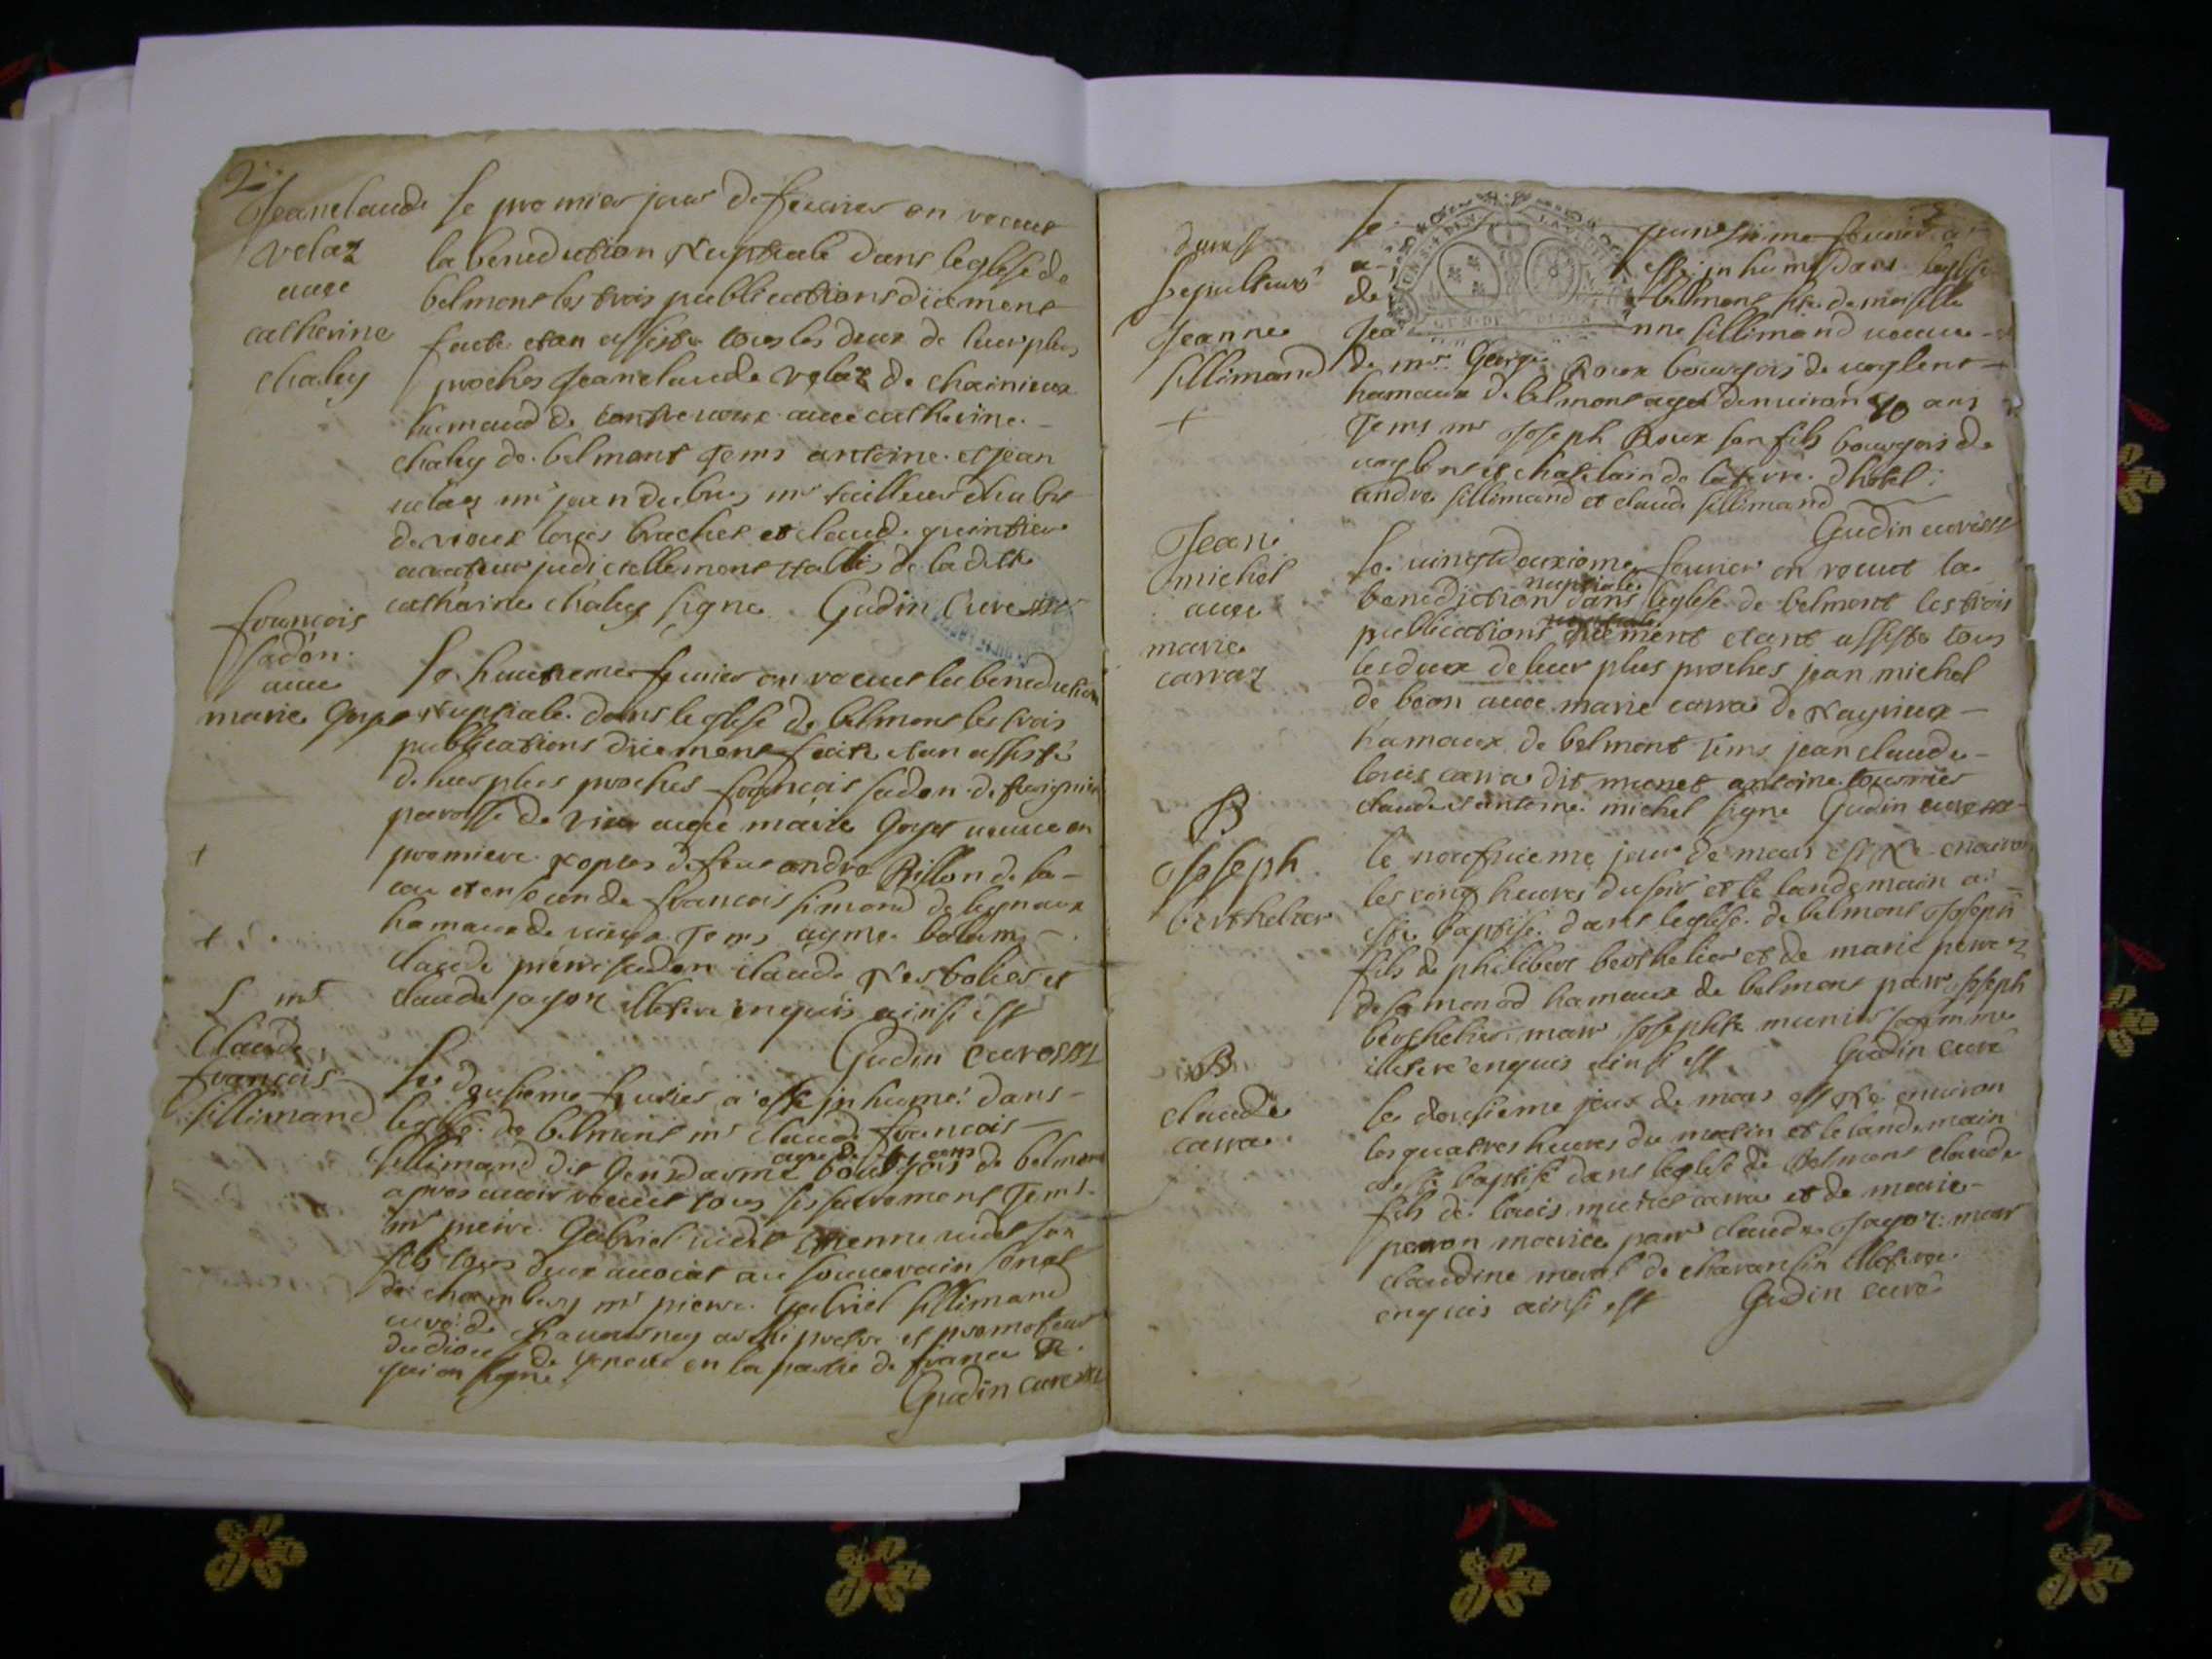 2
Jeanclaude
velaz
avec
catherine
chaley
le premier jour de feuvrier on receut
la benediction Nuptiale dans leglise de
belmont les trois publications düement
faite etan assisté tous les deux de leur plus
proches Jeanclaude velaz de chainieux
hamaud de avec catherine
chaley de belmont Tems antoine et jean
velaz mr jean dubuy mr tailleur dhabit
de vioux louis brachet et claude quintieu
curateur judiciellement de la ditte
catherine chaley signe Gudin Cure
francois
sadon
avec
marie Goyet
le huitieme feuvrier on receut la benediction
Nuptiale dans leglise de belmont les trois
publications düement faite etan assisté
de leur plus proches francois sadon de
paroisse de vieu avec marie Goyet veuve en
premiere Noples de feu andre Billon de la
et en seconde francois simond de
hamaux de Tems ayme
claude pierre sadon claude et
claude jayor illetere enquis ainsi est
Gudin Cure
+
+
S mr
Claude
francois
sillimand
le dousieme feuvrier a esté inhumé dans
leglise de belmont mr claude francois
agé de ans
sillimand dit Gensdarme bourgois de belmont
apres avoir receut tous ses sacrement Tems
mr pierre Gabriel Etienne son
fils tous deux avocat au souverain senat
de chambery mr pierre Gabriel sillimand
curé de archi pretre et promoteur
du dioces de geneve en la partie de france &
qui on signe
Gudin Cure
Sepulture
Jeanne
sillimand
+
le feuvrier a
esté inhumé dans leglise
de belmont demoiselle
Jeanne sillimand veuve
de mr George Roux bourgois de voglent
hamaux de belmont agée denviron 80 ans
Tems mr Joseph Roux son fils bourgois de
voglent et chatelain de dhotel
andre sillimand et claude sillimand
Gudin cure
Jean
michel
avec
marie
carraz
le vingt deuxieme feuvrier on receut la
nuptiale
benediction dans leglise de belmont les trois
publications düement etant assisté tous
les deux de leur plus proches jean michel
de beon avec marie carra de Nayrieux
hamaux de belmont Tems jean claude
louis carra dit munet antoine tournier
claude et antoine michel signe Gudin cure
B
Joseph
berthelier
le neufvieme jour de mars est Né environ
les cinq heures du soir et le landemain a
esté baptisé dans leglise de belmont Joseph
fils de philibert berthelier et de marie
de hamaux de belmont parr Joseph
berthelier marr Josephte munier sa femme
illetere enquis ainsi est Gudin curé
B
claude
carra
le dousieme jour de mars est Né environ
les quatres heures du matin et le landemain
a esté baptisé dans leglise de Belmont claude
fils de louis munet carra et de marie
marice parr claude Jayor marr
claudine de charansin illetere
enquis ainsi est Gudin curé